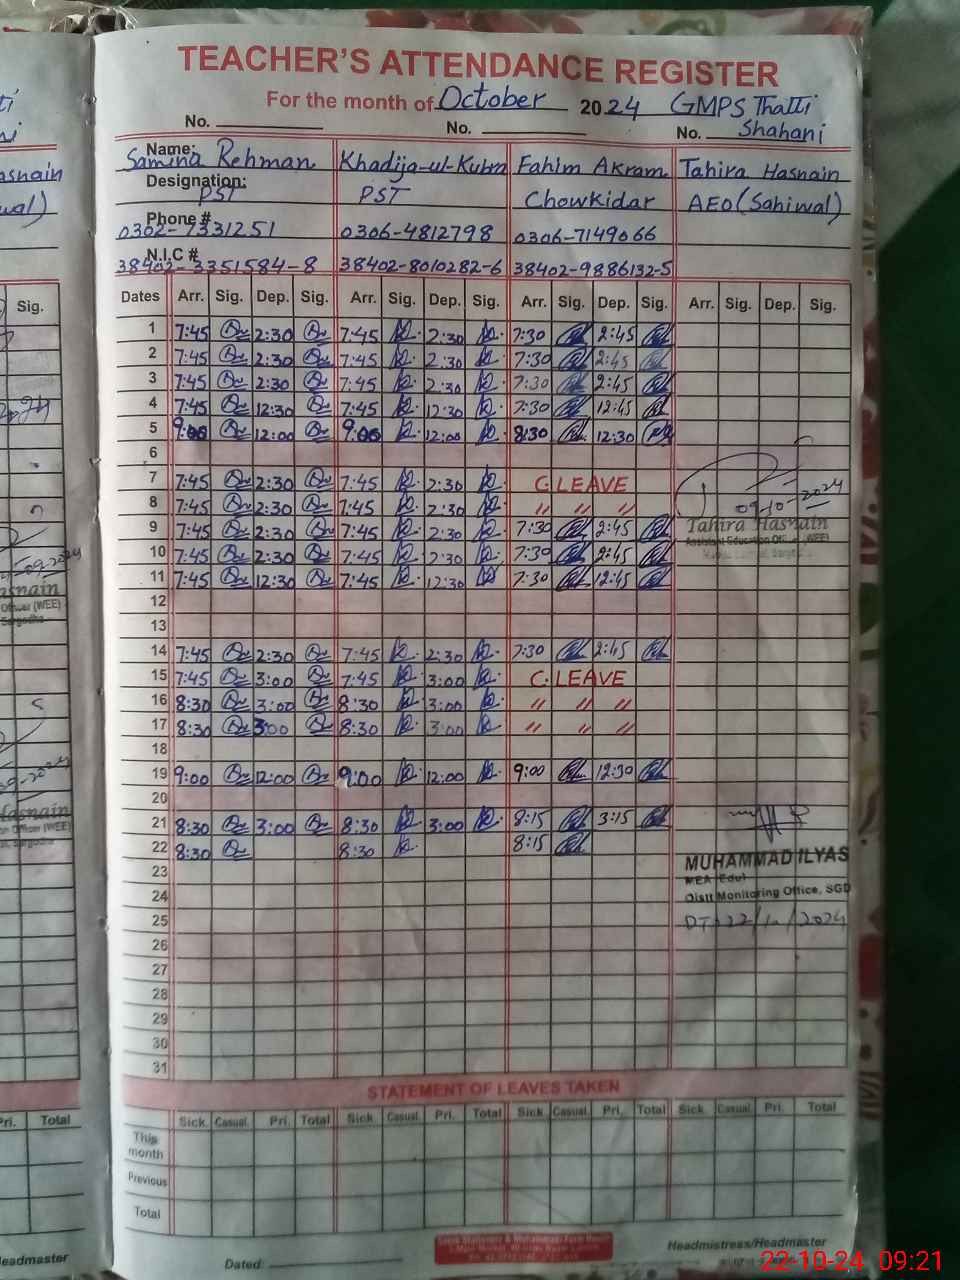 TEACHER'S ATTENDANCE REGISTER
For the month of October 2024 GMPS Thatti
No. No. No. Shahani
Name: Samina Rehman Khadija-ul-Kubra Fahim Akram Tahira Hasnain
Designation: PST PST Chowkidar AEO (Sahiwal)
Phone # 0302-7331251 0306-4812798 0306-7149066
N.I.C # 38402-3351584-8 38402-8010282-6 38402-9886132-5
Dates Arr. Sig. Dep. Sig. Arr. Sig. Dep. Sig. Arr. Sig. Dep. Sig. Arr. Sig. Dep. Sig.
1 7:45 2:30 7:45 2:30 7:30 2:45
2 7:45 2:30 7:45 2:30 7:30 2:45
3 7:45 2:30 7:45 2:30 7:30 2:45
4 7:45 12:30 7:45 12:30 7:30 12:45
5 9:00 12:00 9:00 12:00 8:30 12:30
6
7 7:45 2:30 7:45 2:30 C. LEAVE
8 7:45 2:30 7:45 2:30 " " " 09-10-2024
9 7:45 2:30 7:45 2:30 7:30 2:45 Tahira Hasnain
10 7:45 2:30 7:45 2:30 7:30 2:45 Assistant Education Officer (WEE)
11 7:45 12:30 7:45 12:30 7:30 12:45
12
13
14 7:45 2:30 7:45 2:30 7:30 2:45
15 7:45 3:00 7:45 3:00 C. LEAVE
16 8:30 3:00 8:30 3:00 " " "
17 8:30 3:00 8:30 3:00 " " "
18
19 9:00 12:00 9:00 12:00 9:00 12:30
20
21 8:30 3:00 8:30 3:00 8:15 3:15
22 8:30 8:30 8:15 MUHAMMAD ILYAS
23 MEA (Edu)
24 Distt Monitoring Office, SGD
25 DT: 22/10/2024
26
27
28
29
30
31
STATEMENT OF LEAVES TAKEN
Sick Casual Pri. Total Sick Casual. Pri. Total Sick Casual. Pri. Total Sick Casual Pri. Total
This month
Previous
Total
Dated: Headmistress/Headmaster
22-10-24 09:21